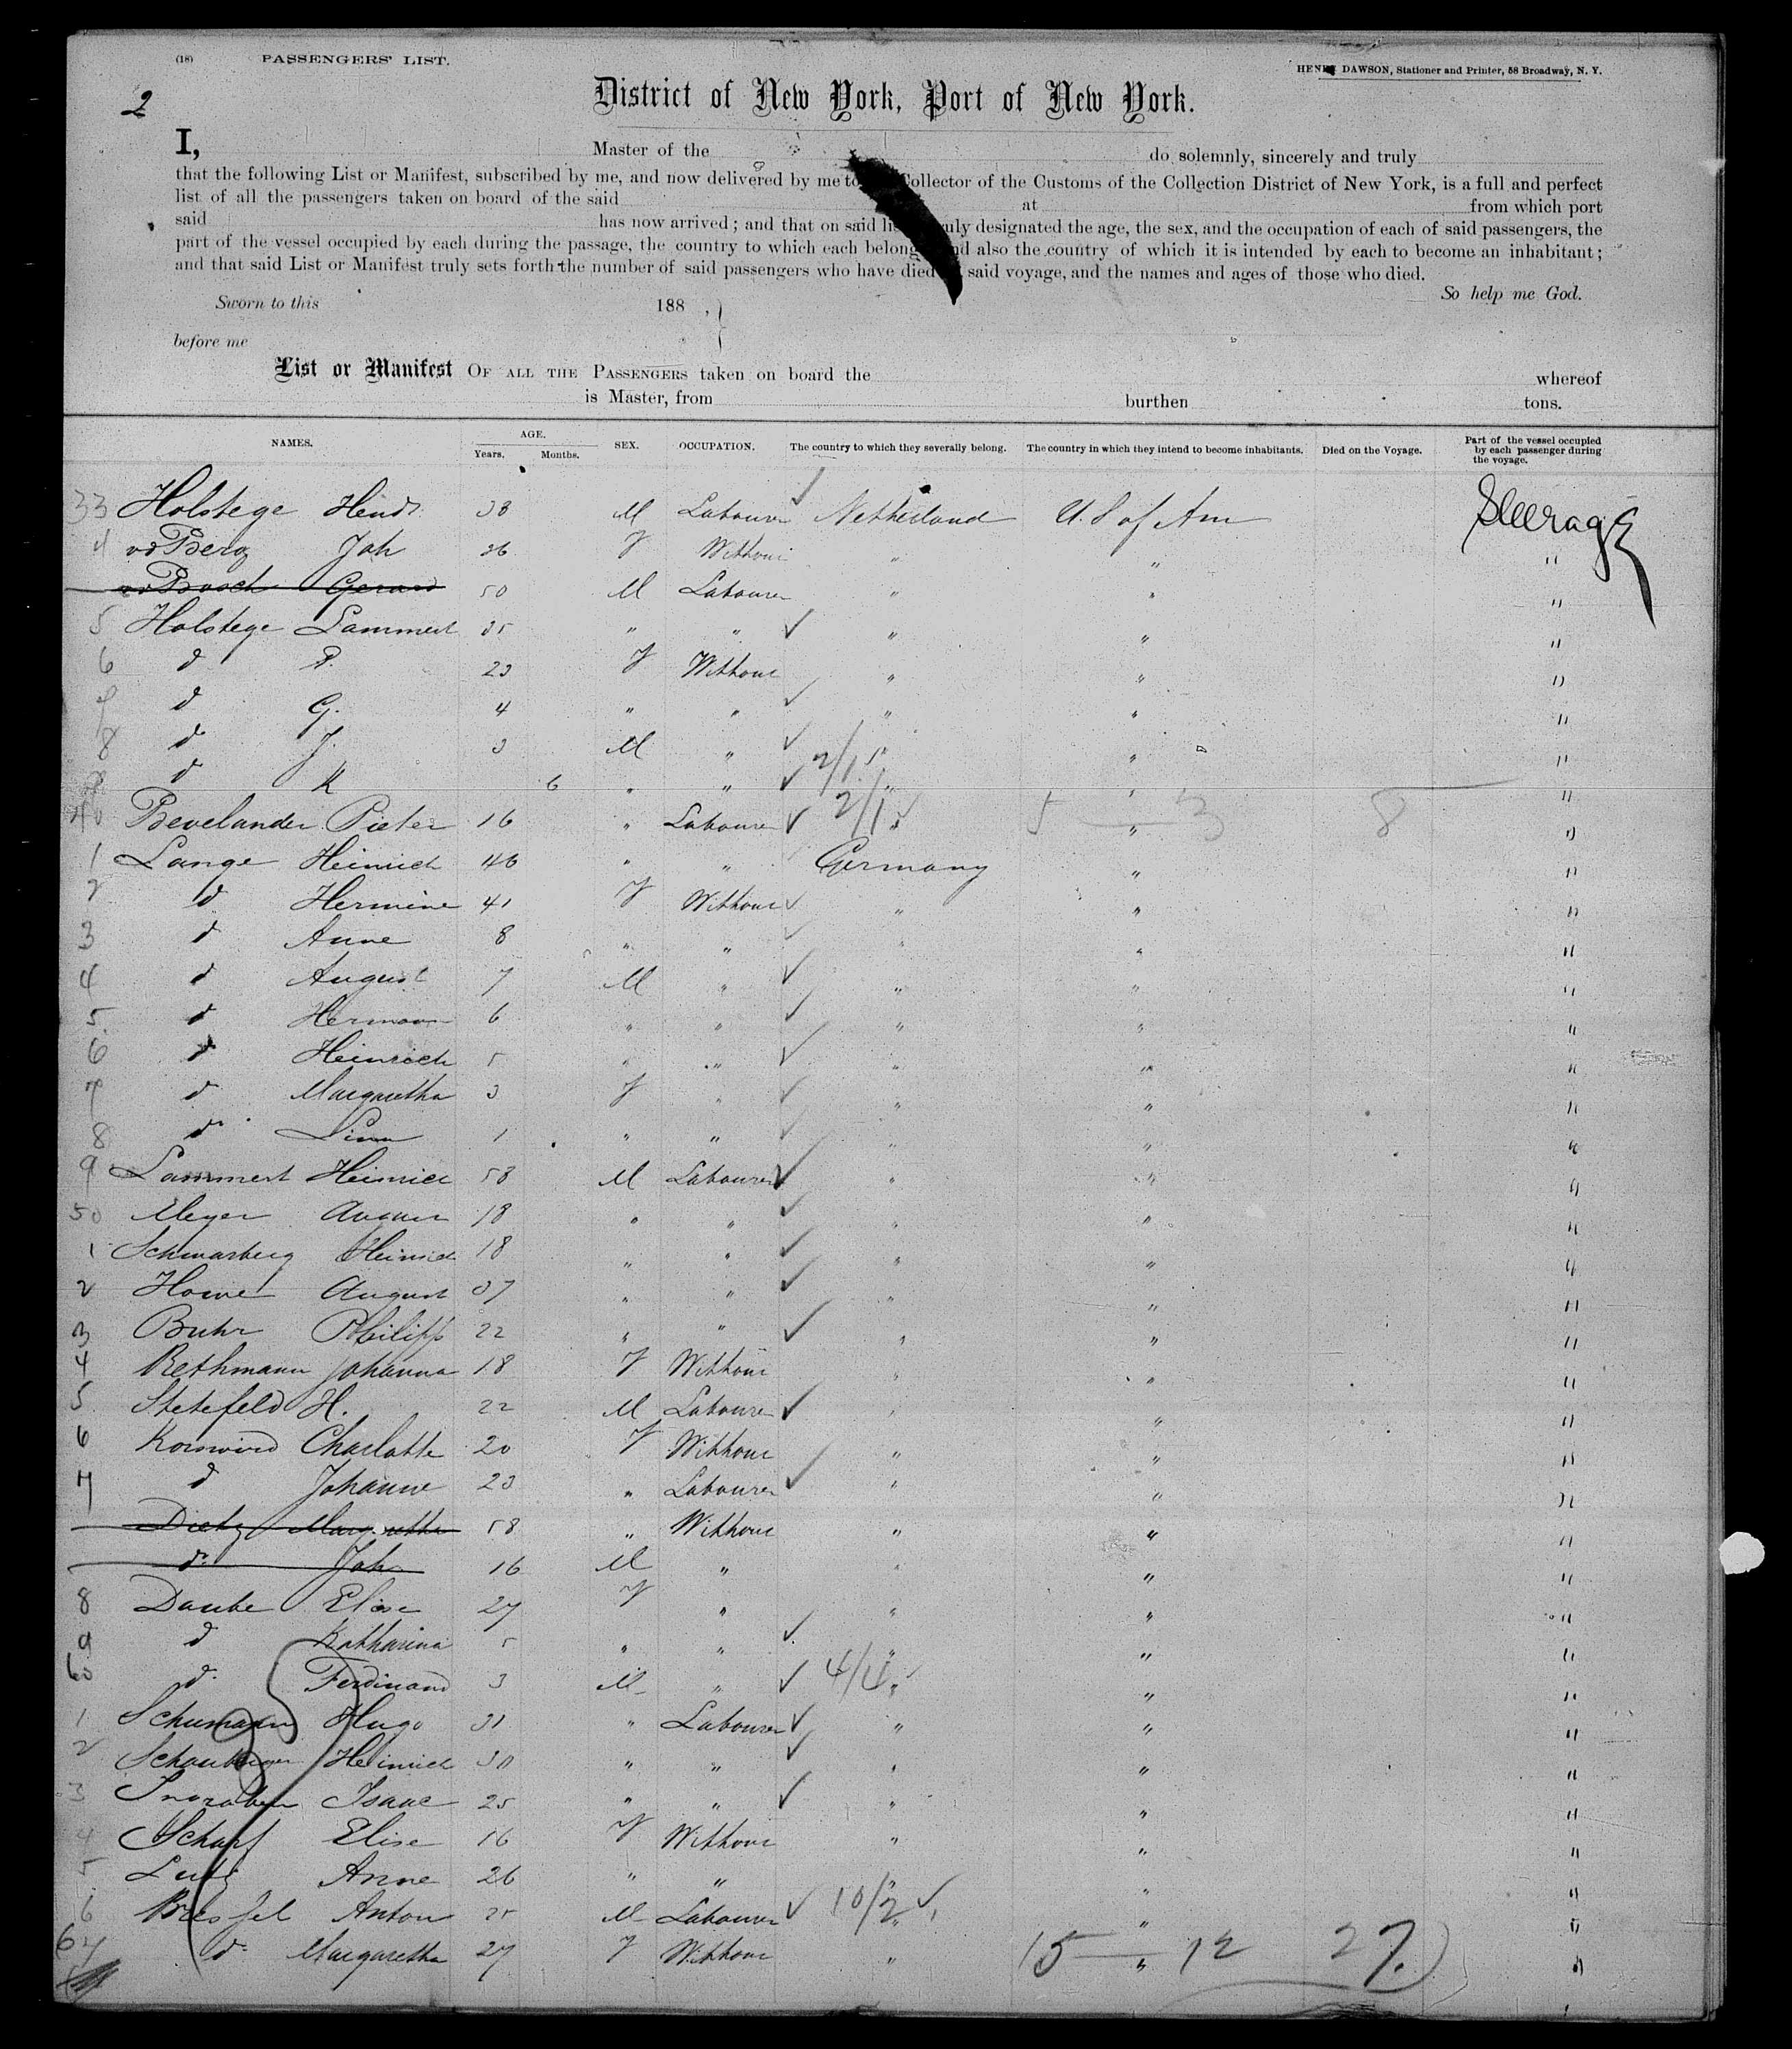 (18) PASSENGERS' LIST.
HENRY DAWSON, Stationer and Printer, 58 Broadway, N. Y.
2
District of New York, Port of New York.
I, Master of the do solemnly, sincerely and truly
that the following List or Manifest, subscribed by me, and now delivered by me to Collector of the Customs of the Collection District of New York, is a full and perfect
list of all the passengers taken on board of the said at from which port
said has now arrived; and that on said truly designated the age, the sex, and the occupation of each of said passengers, the
part of the vessel occupied by each during the passage, the country to which each belong and also the country of which it is intended by each to become an inhabitant;
and that said List or Manifest truly sets forth the number of said passengers who have died said voyage, and the names and ages of those who died.
So help me God.
Sworn to this 188 ,
before me
List or Manifest OF ALL THE PASSENGERS taken on board the whereof
is Master, from burthen tons.
NAMES. AGE. Years. Months. SEX. OCCUPATION. The country to which they severally belong. The country in which they intend to become inhabitants. Died on the Voyage. Part of the vessel occupied by each passenger during the voyage.
33 Holstege Hendr 38 M Labourer Netherland U. S of Am Steerage
4 vd Berg Joh 26 F Without " " "
vd Bosch Gerard 50 M Labourer " " "
5 Holstege Lammert 35 " " " " "
6 d P. 23 F Without " " "
7 d G. 4 " " " " "
8 d J. 3 M " 2/1 " " "
9 d K 6 " " " " "
40 Bevelander Pieter 16 " Labourer 2/1 " 5 — 3 8 "
1 Lange Heinrich 46 " " Germany " "
2 d Hermine 41 F Without " " "
3 d Anne 8 " " " " "
4 d August 7 M " " " "
5 d Hermann 6 " " " " "
6 d Heinrich 5 " " " " "
7 d Margaretha 3 F " " " "
8 d Lina 1 " " " " "
9 Lammert Heinrich 58 M Labourer " " "
50 Meyer August 18 " " " " "
1 Schwarberg Heinrich 18 " " " " "
2 Howe August 37 " " " " "
3 Buhr Philipp 22 " " " " "
4 Rethmann Johanna 18 F Without " " "
5 Stetefeld H. 22 M Labourer " " "
6 Charlotte 20 F Without " " "
7 d Johanne 23 " Labourer " " "
Dietz Margaretha 58 " Without " " "
d Joh 16 M " " " "
8 Daube Elise 27 F " " " "
9 d Katharina 5 " " " " "
60 d Ferdinand 3 M " 4/4 " " "
1 Schumann Hugo 31 " Labourer " " "
2 Heinrich 30 " " " " "
3 Isaac 25 " " " " "
4 Scharf Elise 16 F Without " " "
5 Lutz Anne 26 " " " " "
6 Anton 25 M Labourer 10/2 " " "
67 d Margaretha 27 F Without " 15 — 12 27. "